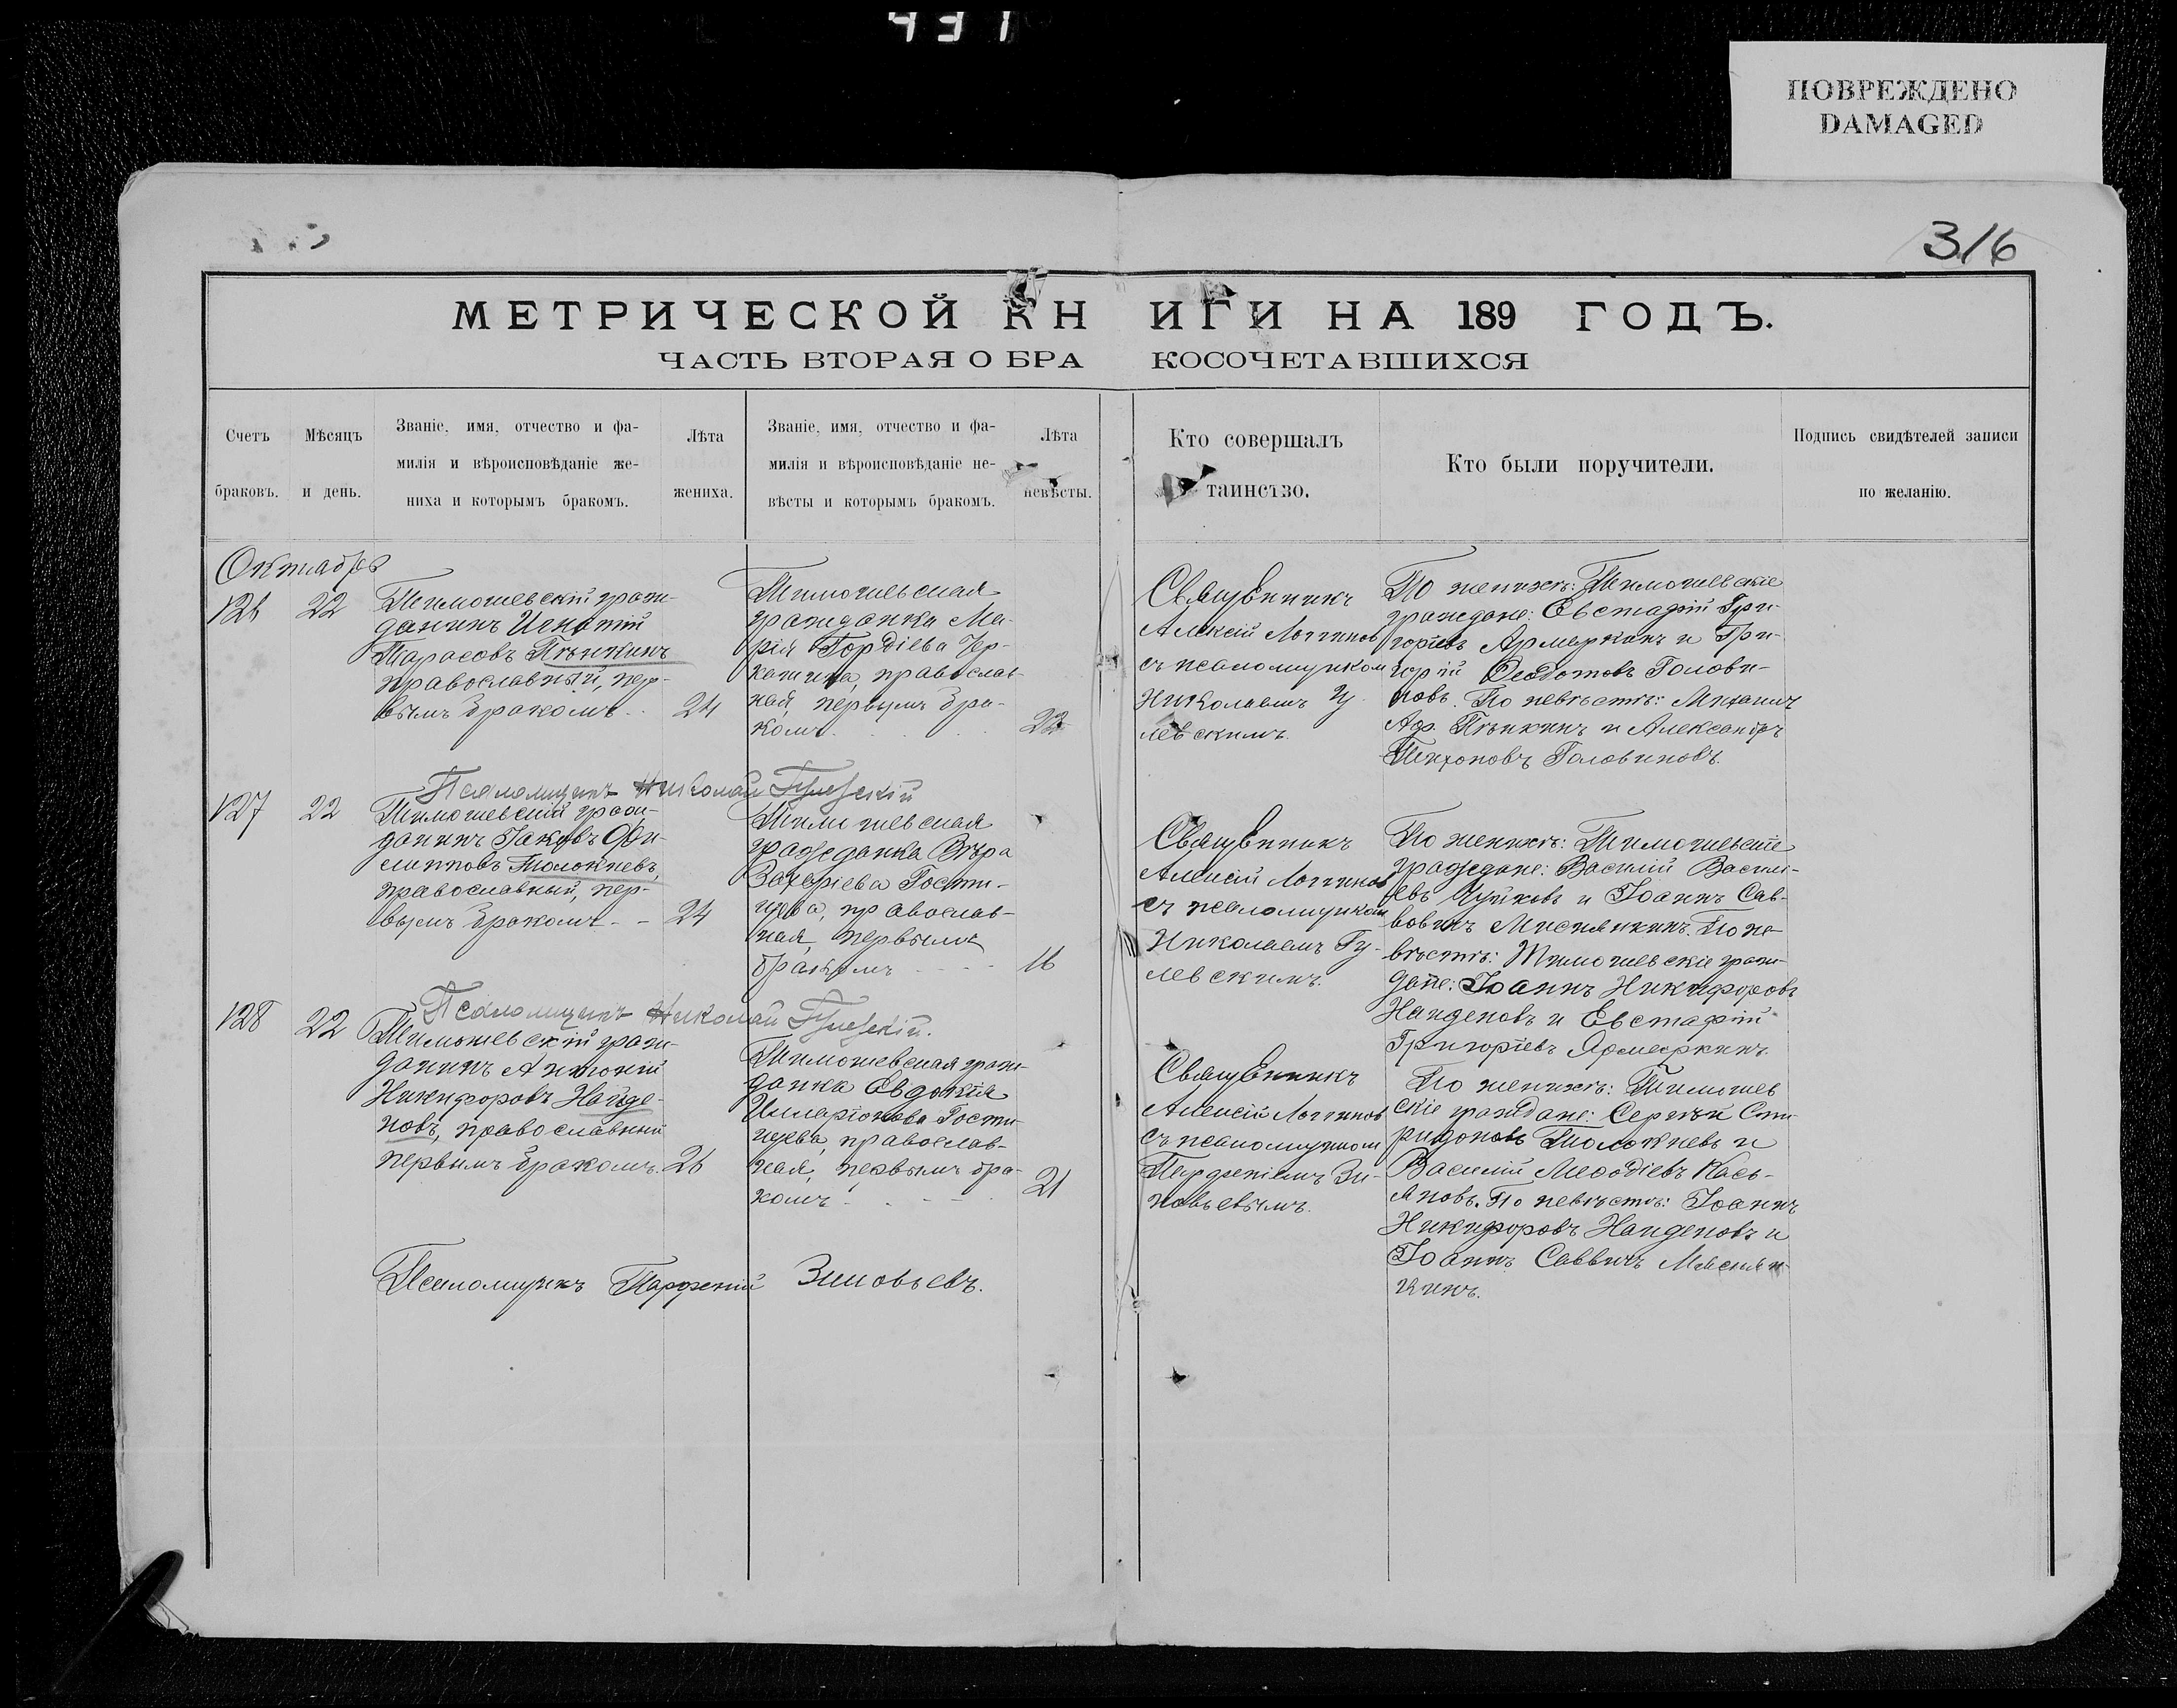 431
ПОВРЕЖДЕНО
DAMAGED
316
МЕТРИЧЕСКОЙ КНИГИ НА 189 ГОДЪ.
ЧАСТЬ ВТОРАЯ О БРАКОСОЧЕТАВШИХСЯ
Счетъ
браковъ.
Мѣсяцъ
и день.
Званіе, имя, отчество и фа-
милія и вѣроисповѣданіе же-
ниха и которымъ бракомъ.
Лѣта
жениха.
Званіе, имя, отчество и фа-
милія и вѣроисповѣданіе не-
вѣсты и которымъ бракомъ.
Лѣта
невѣсты.
Кто совершалъ
таинство.
Кто были поручители.
Подпись свидѣтелей записи
по желанію.
Октябрь
126
22
Тимошевскій граж-
данинъ Игнатій
Тарасовъ Пѣнкинъ
православный, пер-
вымъ бракомъ
24
Тимошевская
гражданка Ма-
рія Гордіева
православ-
ная, первымъ бра-
комъ
Священникъ
Алексій Логгинов
съ псаломщиком
Николаемъ
левскимъ.
По женихѣ: Тимошевскіе
граждане: Евстафій Гри-
горіевъ Ярмаркинъ и Гри-
горій Федотовъ Голови-
новъ. По невѣстѣ: Михаилъ
Пѣнкинъ и Александръ
Тихоновъ Головиновъ.
Псаломщикъ Николай Гулевскій
127
22
Тимошевскій граж-
данинъ Іаковъ Фи-
липповъ Толокневъ,
православный, пер-
вымъ бракомъ
24
Тимошевская
гражданка Вѣра
Захаріева Гости-
щева, православ-
ная, первымъ
бракомъ
16
Священникъ
Алексій Логгинов
съ псаломщиком
Николаемъ Гу-
левскимъ.
По женихѣ: Тимошевскіе
граждане: Василій Васили-
евъ Чуйковъ и Іоаннъ Сав-
вовичъ По не-
вѣстѣ: Тимошевскіе граж-
дане: Іоаннъ Никифоровъ
Найденовъ и Евстафій
Григоріевъ Ярмаркинъ.
Псаломщикъ Николай Гулевскій.
128
22
Тимошевскій граж-
данинъ Антоній
Никифоровъ Найде-
новъ, православный
первымъ бракомъ.
26
Тимошевская граж-
данка Евдокія
Илларіонова Гости-
щева, православ-
ная, первымъ бра-
комъ
21
Священникъ
Алексій Логгинов
съ псаломщиком
Парфеніемъ Зи-
новьевымъ.
По женихѣ: Тимошев
скіе граждане: Сергѣй Спи-
ридоновъ Толокневъ и
Василій Меѳодіевъ Кась-
яновъ. По невѣстѣ: Іоаннъ
Никифоровъ Найденовъ и
Іоаннъ Саввичъ
Псаломщикъ Парфеній Зиновьевъ.